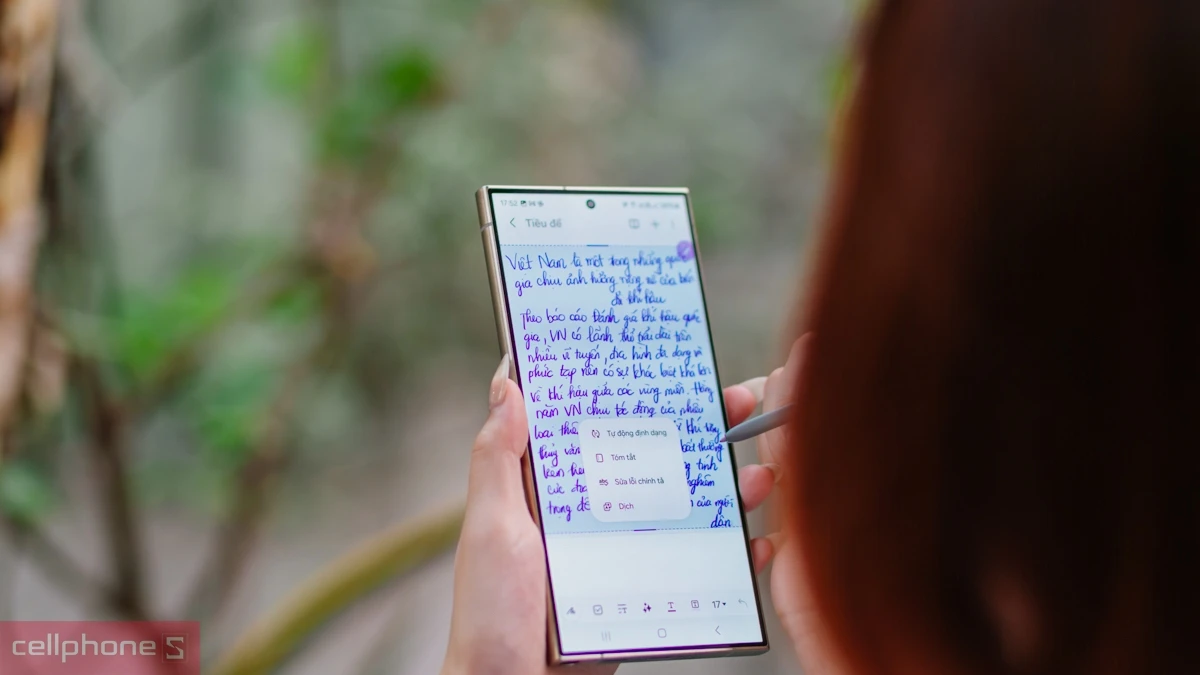 17:52
Tiêu đề
Việt Nam là một trong những
gia chịu ảnh hưởng nặng nề của biến
đổi khí hậu
Theo báo cáo Đánh giá khí hậu quốc
gia, VN có lãnh thổ trải dài trên
nhiều vĩ tuyến, địa hình đa dạng và
phức tạp nên có sự khác biệt khá lớn
về khí hậu giữa các vùng miền. Hàng
năm VN chịu tác động của nhiều
loại khí
thuỷ văn bất thường
Tự động định dạng
Tóm tắt
Sửa lỗi chính tả
Dịch
trong của người
dân
17
cellphoneS